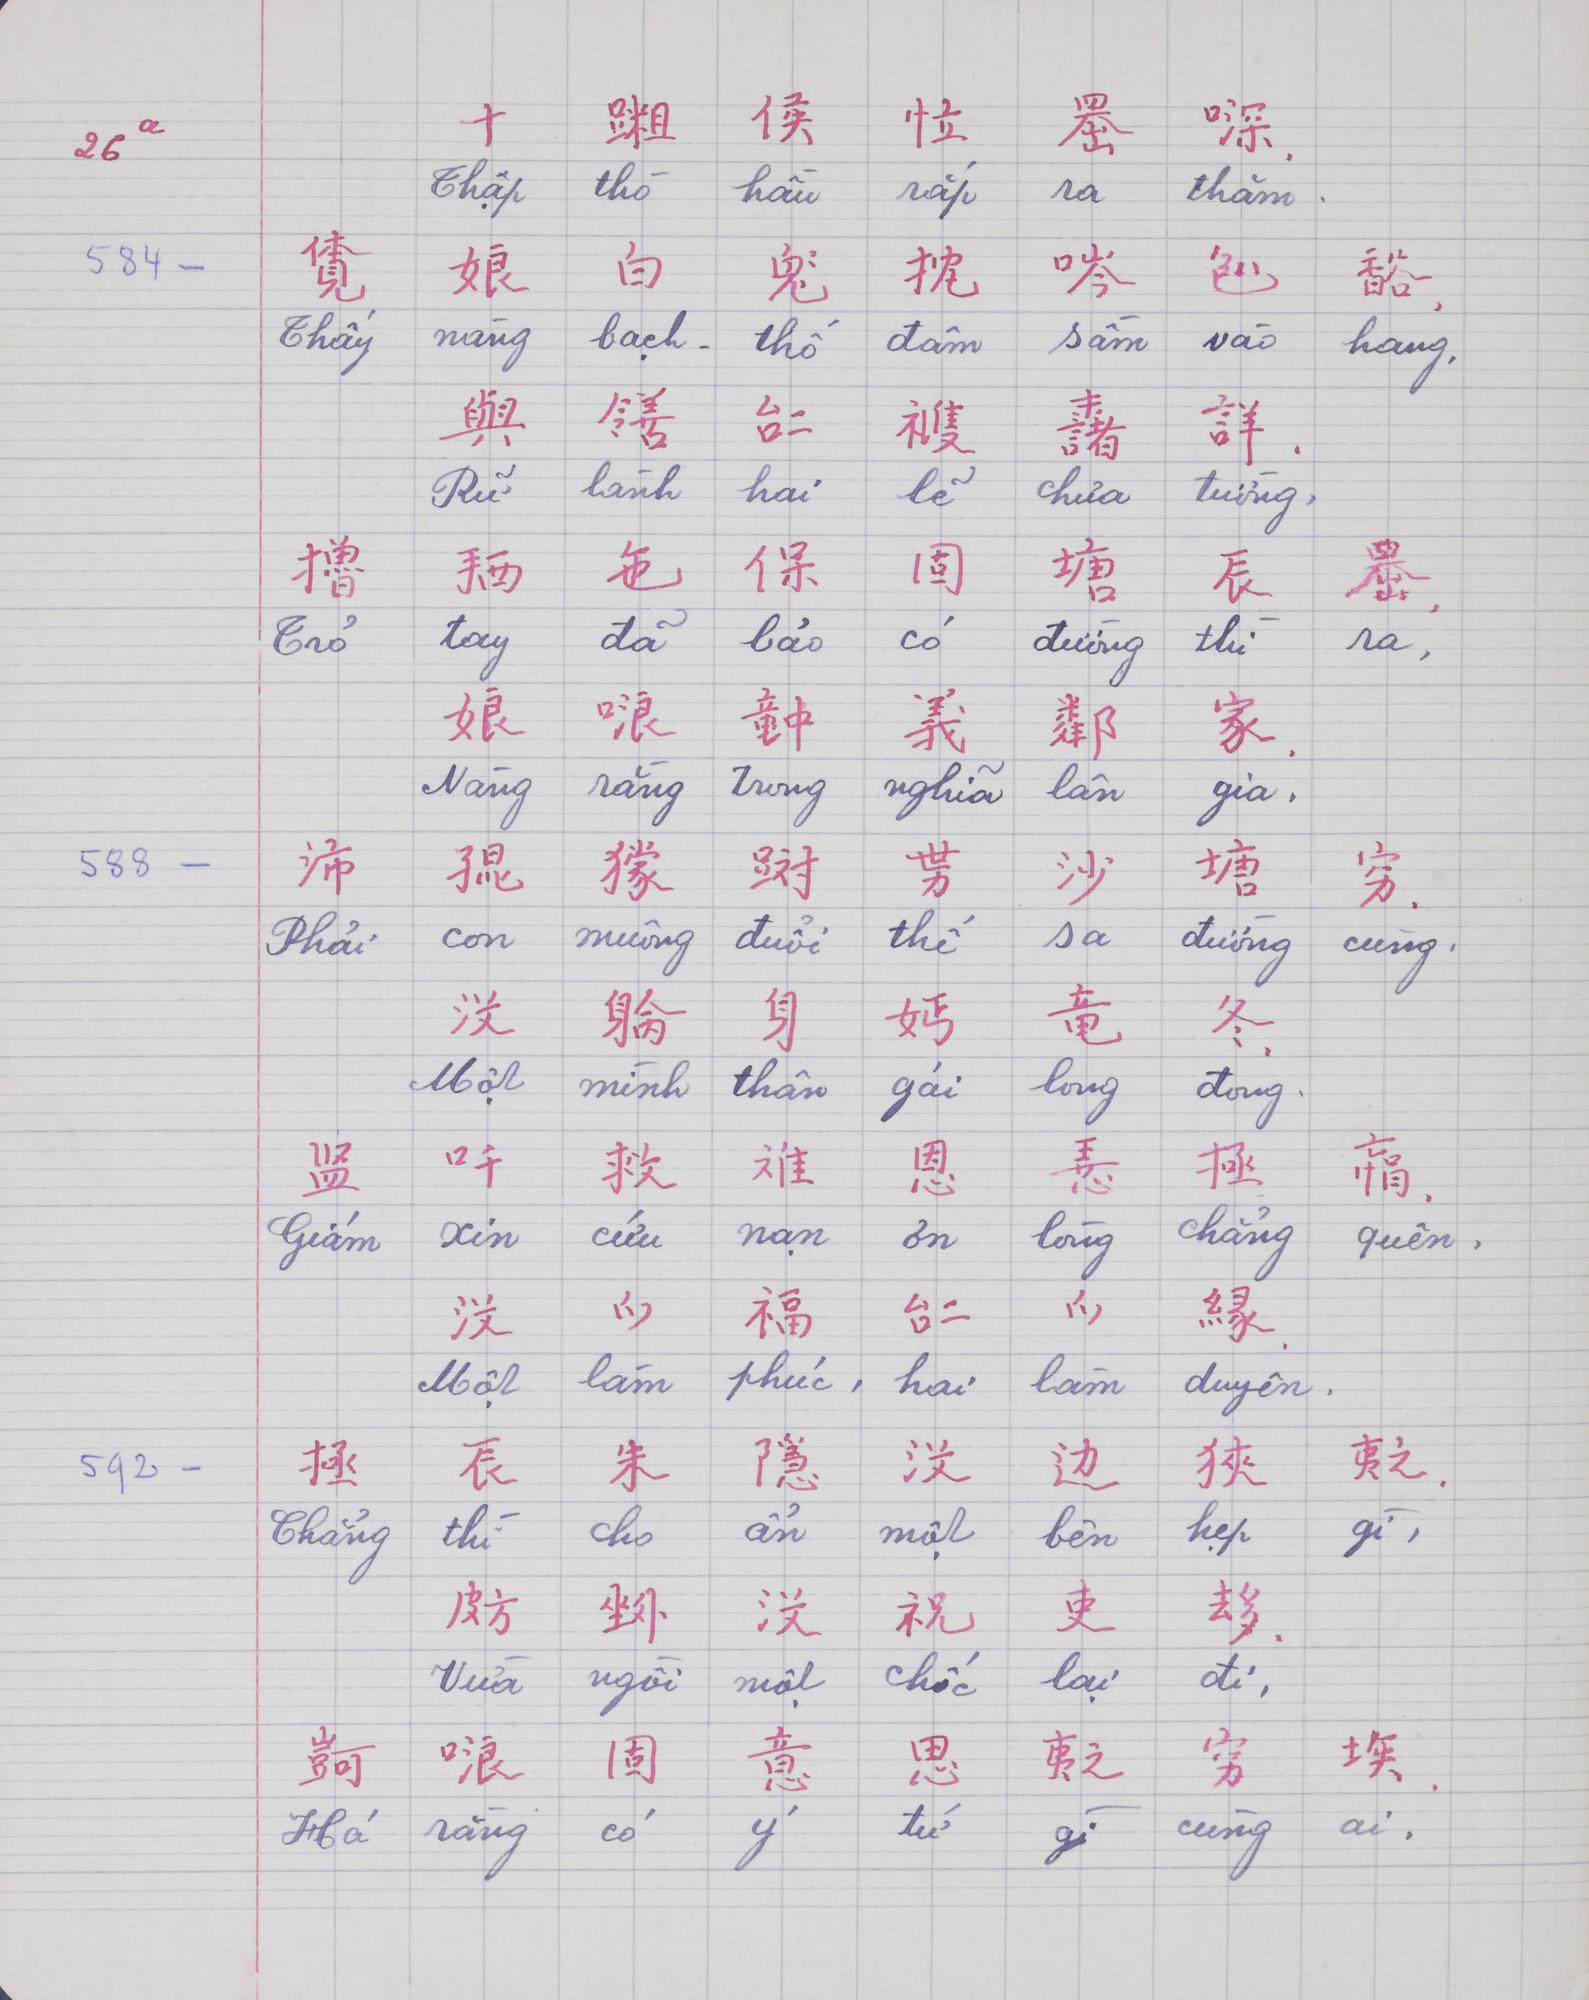 26ª
十 𨅹 侯 㤴 𫥨 㗲.
Thập thò hầu rắp ra thăm.
584 –
娘 白 兔 扰 㖗 𠓨 㗂.
Thấy nàng bạch-thố đâm sầm vào hang,
與 台二 詳.
Rủ lành hai lẽ chửa tường,
㧣 拪 㐌 保 固 塘 辰 𫥨.
Trỏ tay đã bảo có đường thì ra,
娘 哴 𥪝 義 鄰 家.
Nàng rằng trong nghĩa lân gia,
588 –
沛 𡥵 獴 𨀎 势 沙 塘 穷.
Phải con muông đuổi thế sa đường cùng.
没 𨉟 身 𡛔 竜 冬.
Một mình thân gái long đong.
监 吀 救 难 恩 𢚸 拯 𠅳.
Giám xin cứu nạn ơn lòng chẳng quên,
没 𫜵 福 𠄩 𫜵 緣.
Một làm phúc, hai làm duyên.
592 –
拯 辰 朱 隱 没 边 狹 夷之.
Chẳng thì cho ẩn một bên hẹp gì,
𣃣 𡎢 没 祝 吏 𠫾.
Vừa ngồi một chốc lại đi,
哴 固 意 思 夷之 穷 埃.
Há rằng có ý tứ gì cùng ai.